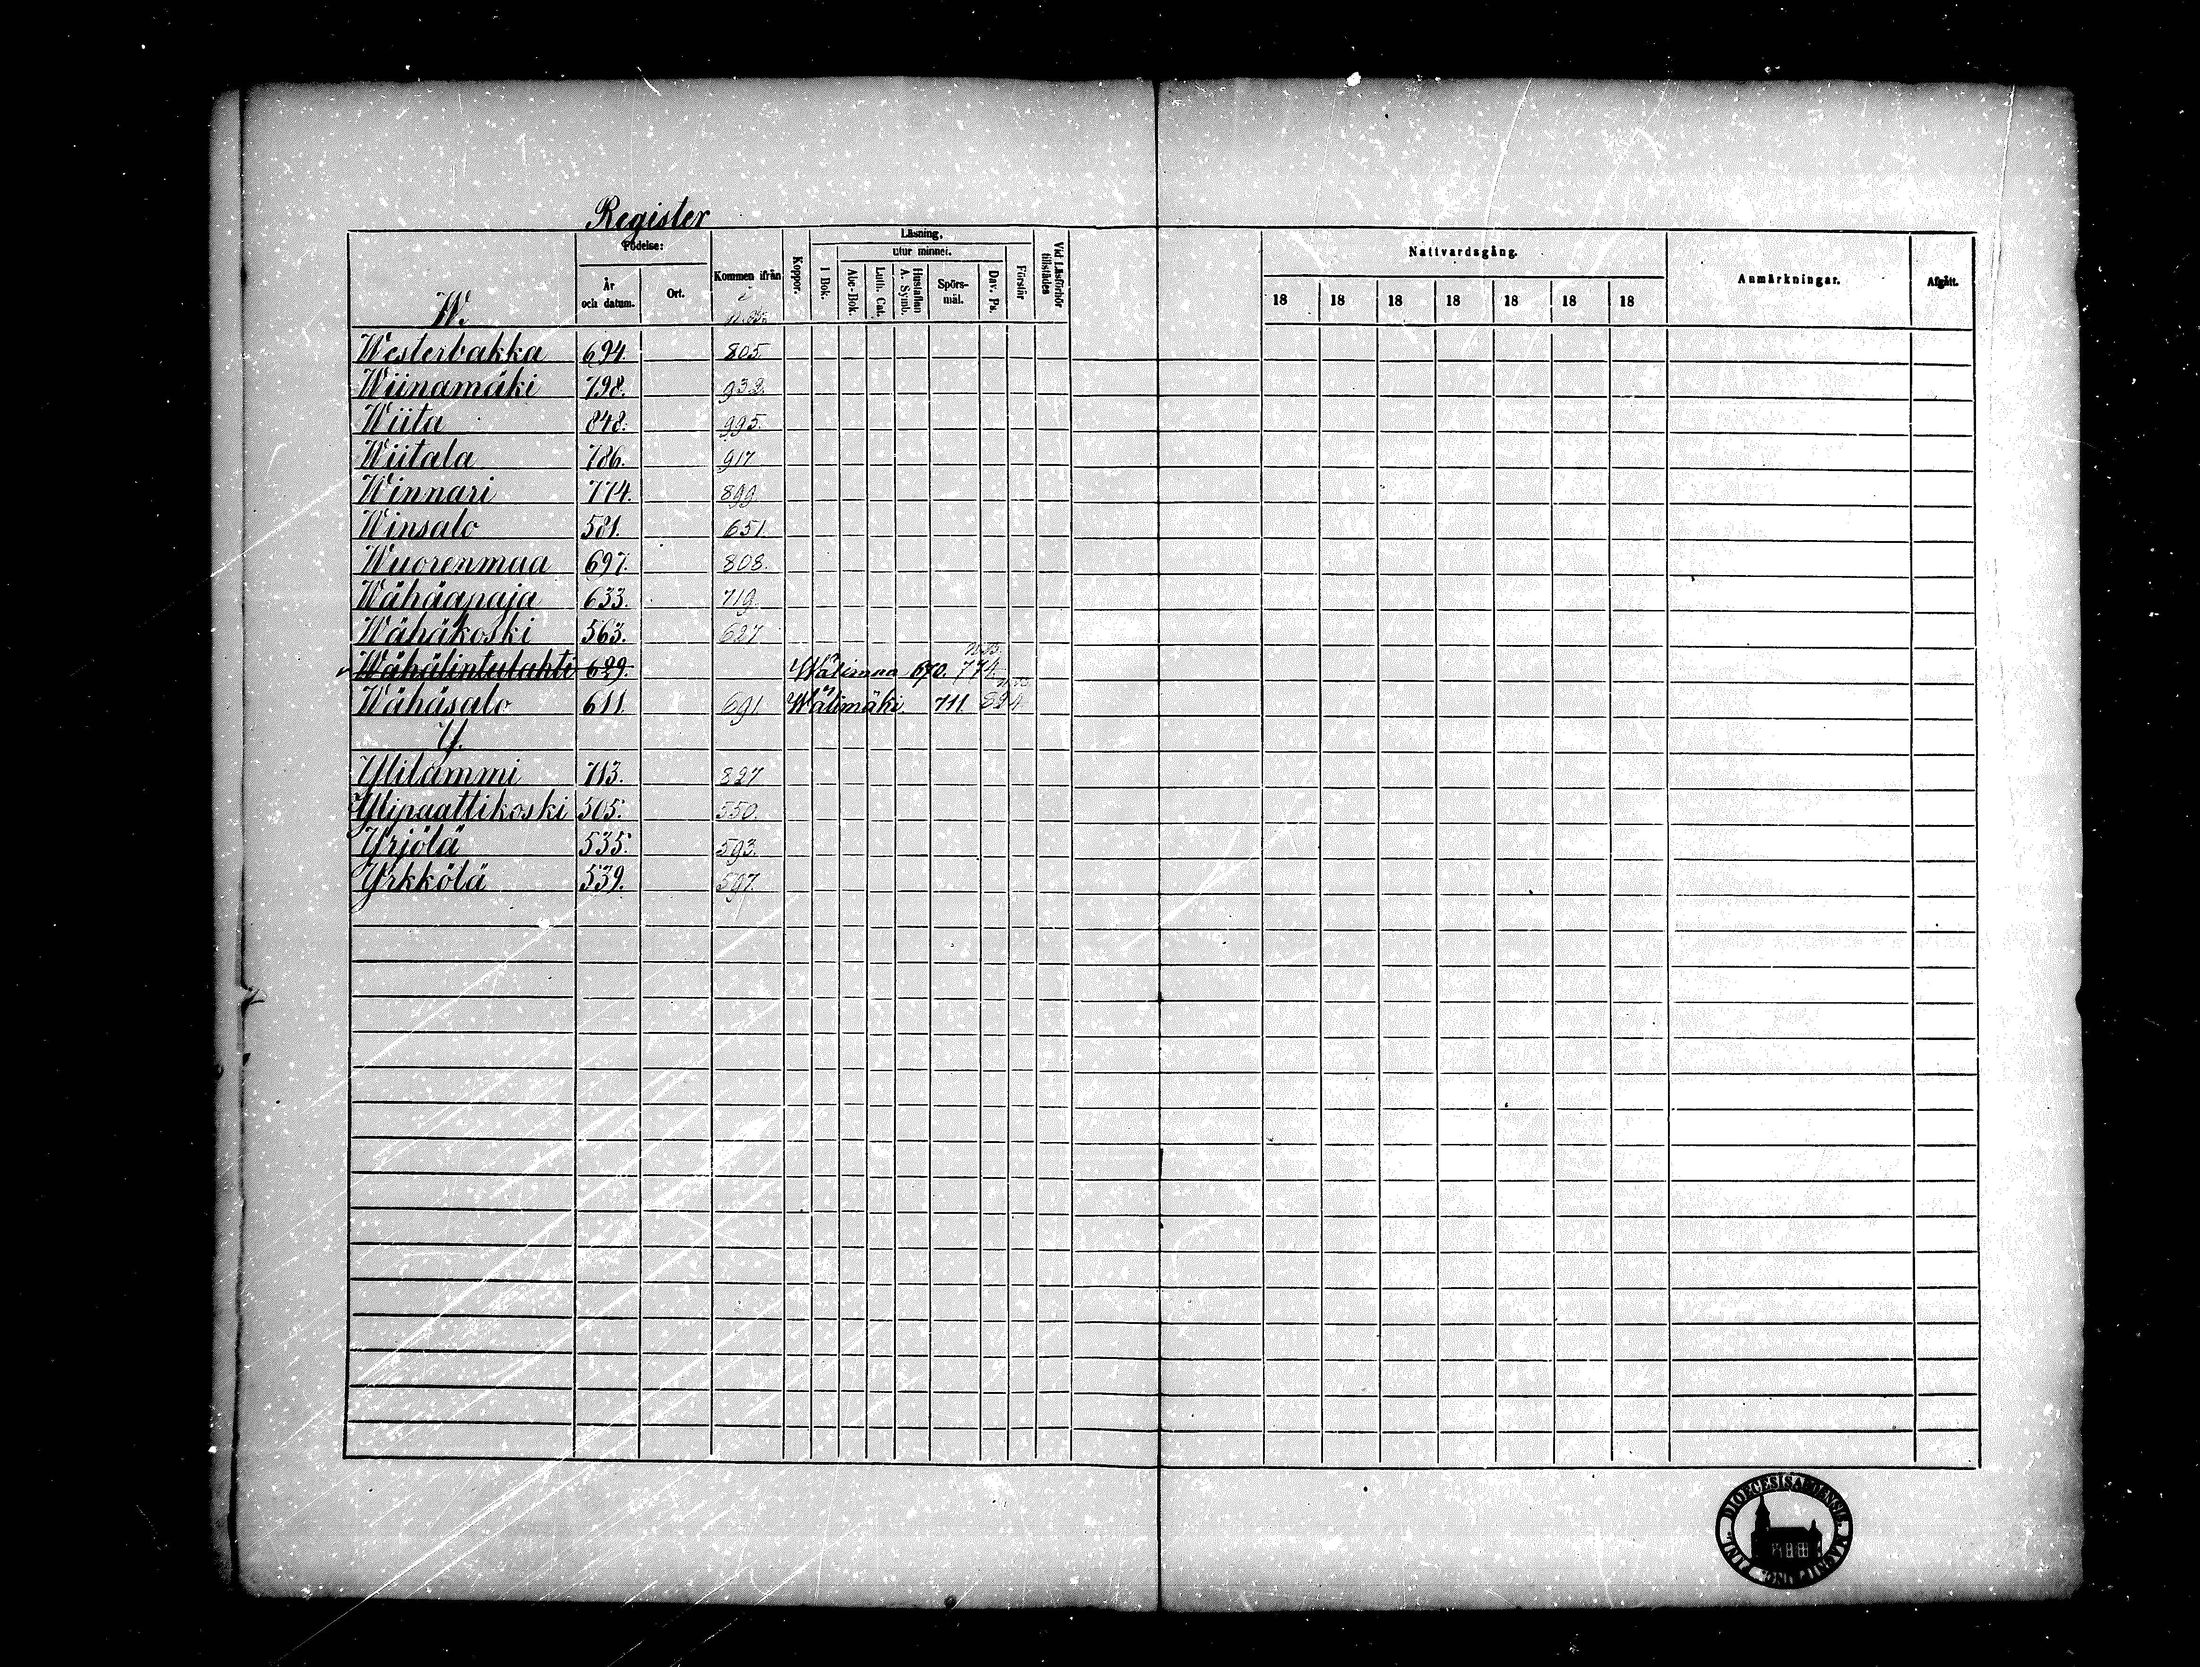 Register
Födelse:
År
och datum.
Ort.
Kommen ifrån
i
N.B.
Koppor.
Läsning.
I Bok.
utur minnet.
Abc-Bok.
Luth. Cat.
Hustaflan
A. Symb.
Spörs-
mål.
Dav. Ps.
Förstår
Vid Läsförhör
tillstädes
Nattvardsgång.
18 18 18 18 18 18 18
Anmärkningar.
Afgått.
W.
Westerbakka 694. 805.
Wiinamäki 798. 932.
Wiita 848. 995.
Wiitala 786. 917
Winnari 774. 899.
Winsalo 581. 651.
Wuorenmaa 697. 808.
Wähäapaja 633. 719.
Wähäkoski 563. 627
Wähälintulahti 629. Wälimaa 670. 774.
Wähäsalo 611. 691. Wälimäki. 711 824.
Y.
Ylilammi 713. 827
Ylipaattikoski 505. 550.
Yrjölä 535. 593.
Yrkkölä 539. 597.